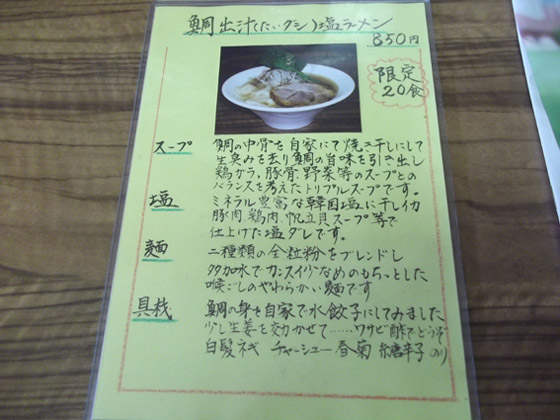 鯛出汁(たいダシ)塩ラーメン
850円
限定
20食
スープ 鯛の中骨を自家にて焼き干しにして
生臭みを去り鯛の旨味を引き出し
鶏ガラ,豚骨,野菜等のスープとの
バランスを考えたトリプルスープです。
塩 ミネラル豊富な韓国塩に干しイカ
豚肉、鶏肉、帆立貝スープ等で
仕上げた塩ダレです。
麺 二種類の全粒粉をブレンドし
多加水でカンスイ少なめのもちっとした
喉ごしのやわらかい麺です
具材 鯛の身を自家で水餃子にしてみました
少し生姜を効かせて……ワサビ酢でどうぞ
白髪ネギ チャーシュー 春菊 糸唐辛子 のり